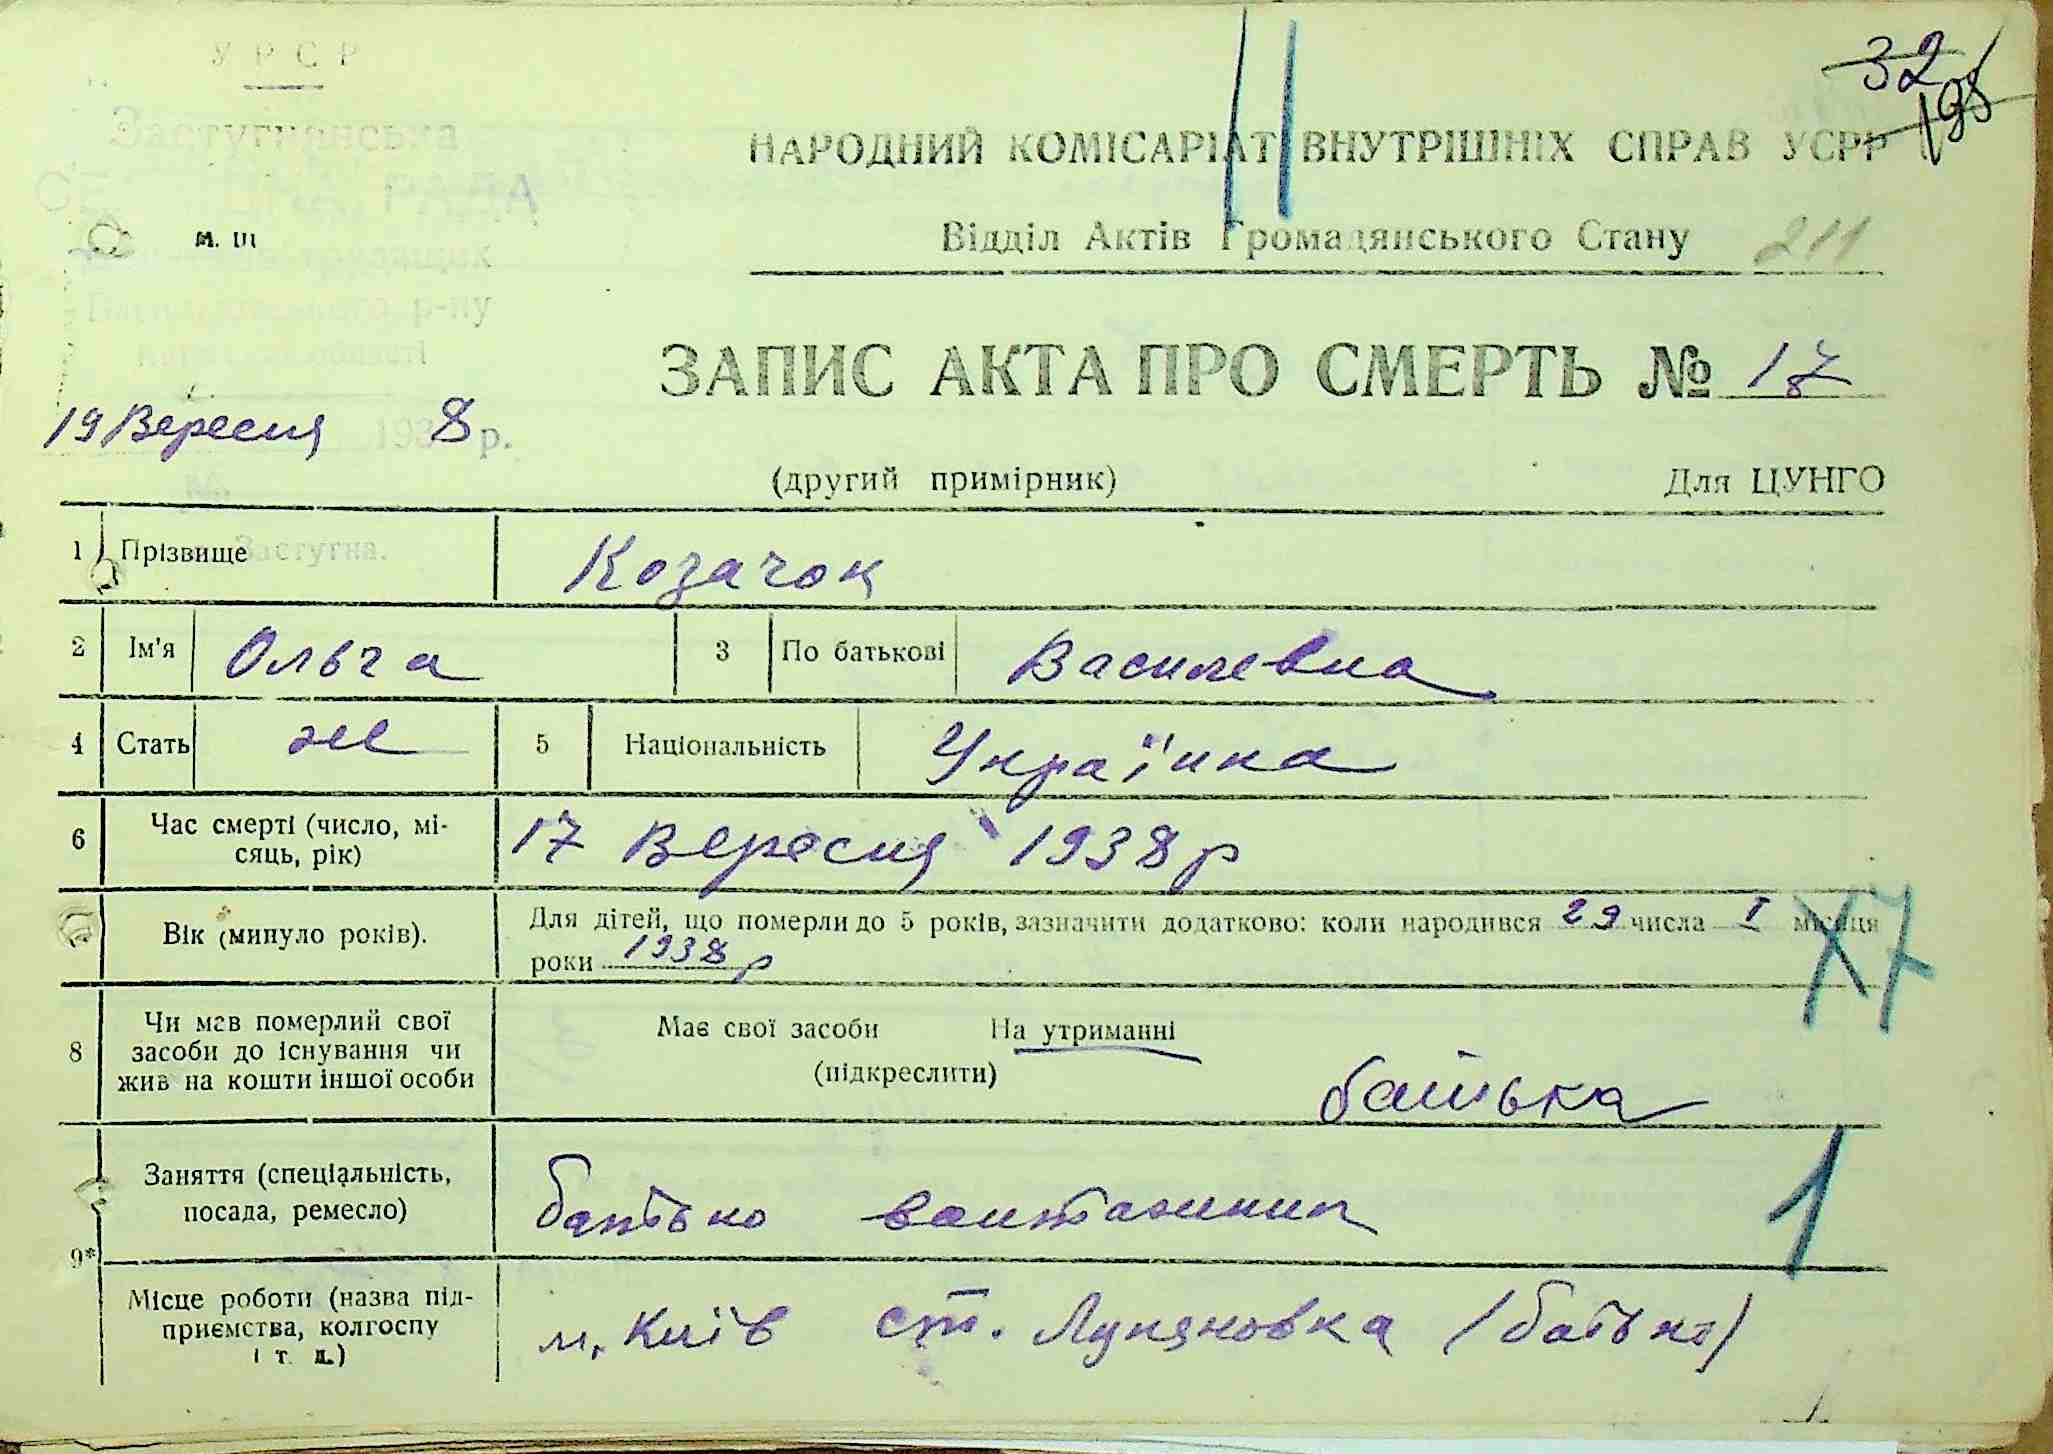 32
195
УРСР
Застугнянська
РАДА
НАРОДНИЙ КОМІСАРІАТ ВНУТРІШНІХ СПРАВ УСРР
м. ш
Відділ Актів Громадянського Стану 211
р-ну
області
ЗАПИС АКТА ПРО СМЕРТЬ № 17
19 Вересня 1938 р.
(другий примірник) Для ЦУНГО
№
Застугна.
1 Прізвище Козачок
2 Ім'я Ольга 3 По батькові Василевна
4 Стать же 5 Національність Українка
6 Час смерті (число, мі-
сяць, рік) 17 Вересня 1938 р
Вік (минуло років). Для дітей, що померли до 5 років, зазначити додатково: коли народився 29 числа I місяця
роки 1938 р
X7
8 Чи мав померлий свої
засоби до існування чи
жив на кошти іншої особи
Має свої засоби На утриманні
(підкреслити)
батька
1
9* Заняття (спеціальність,
посада, ремесло) батько вантажник
Місце роботи (назва під-
приємства, колгоспу
і т. д.) м. Київ ст. Лукяновка (батько)